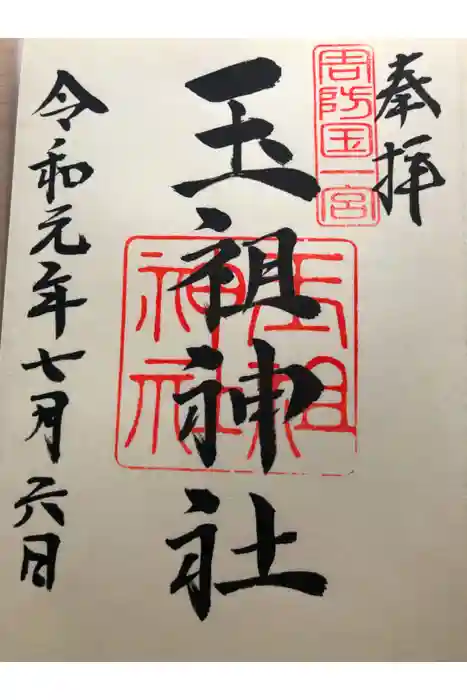 奉拝
周防国一宮
玉祖神社
玉祖
神社
令和元年七月六日